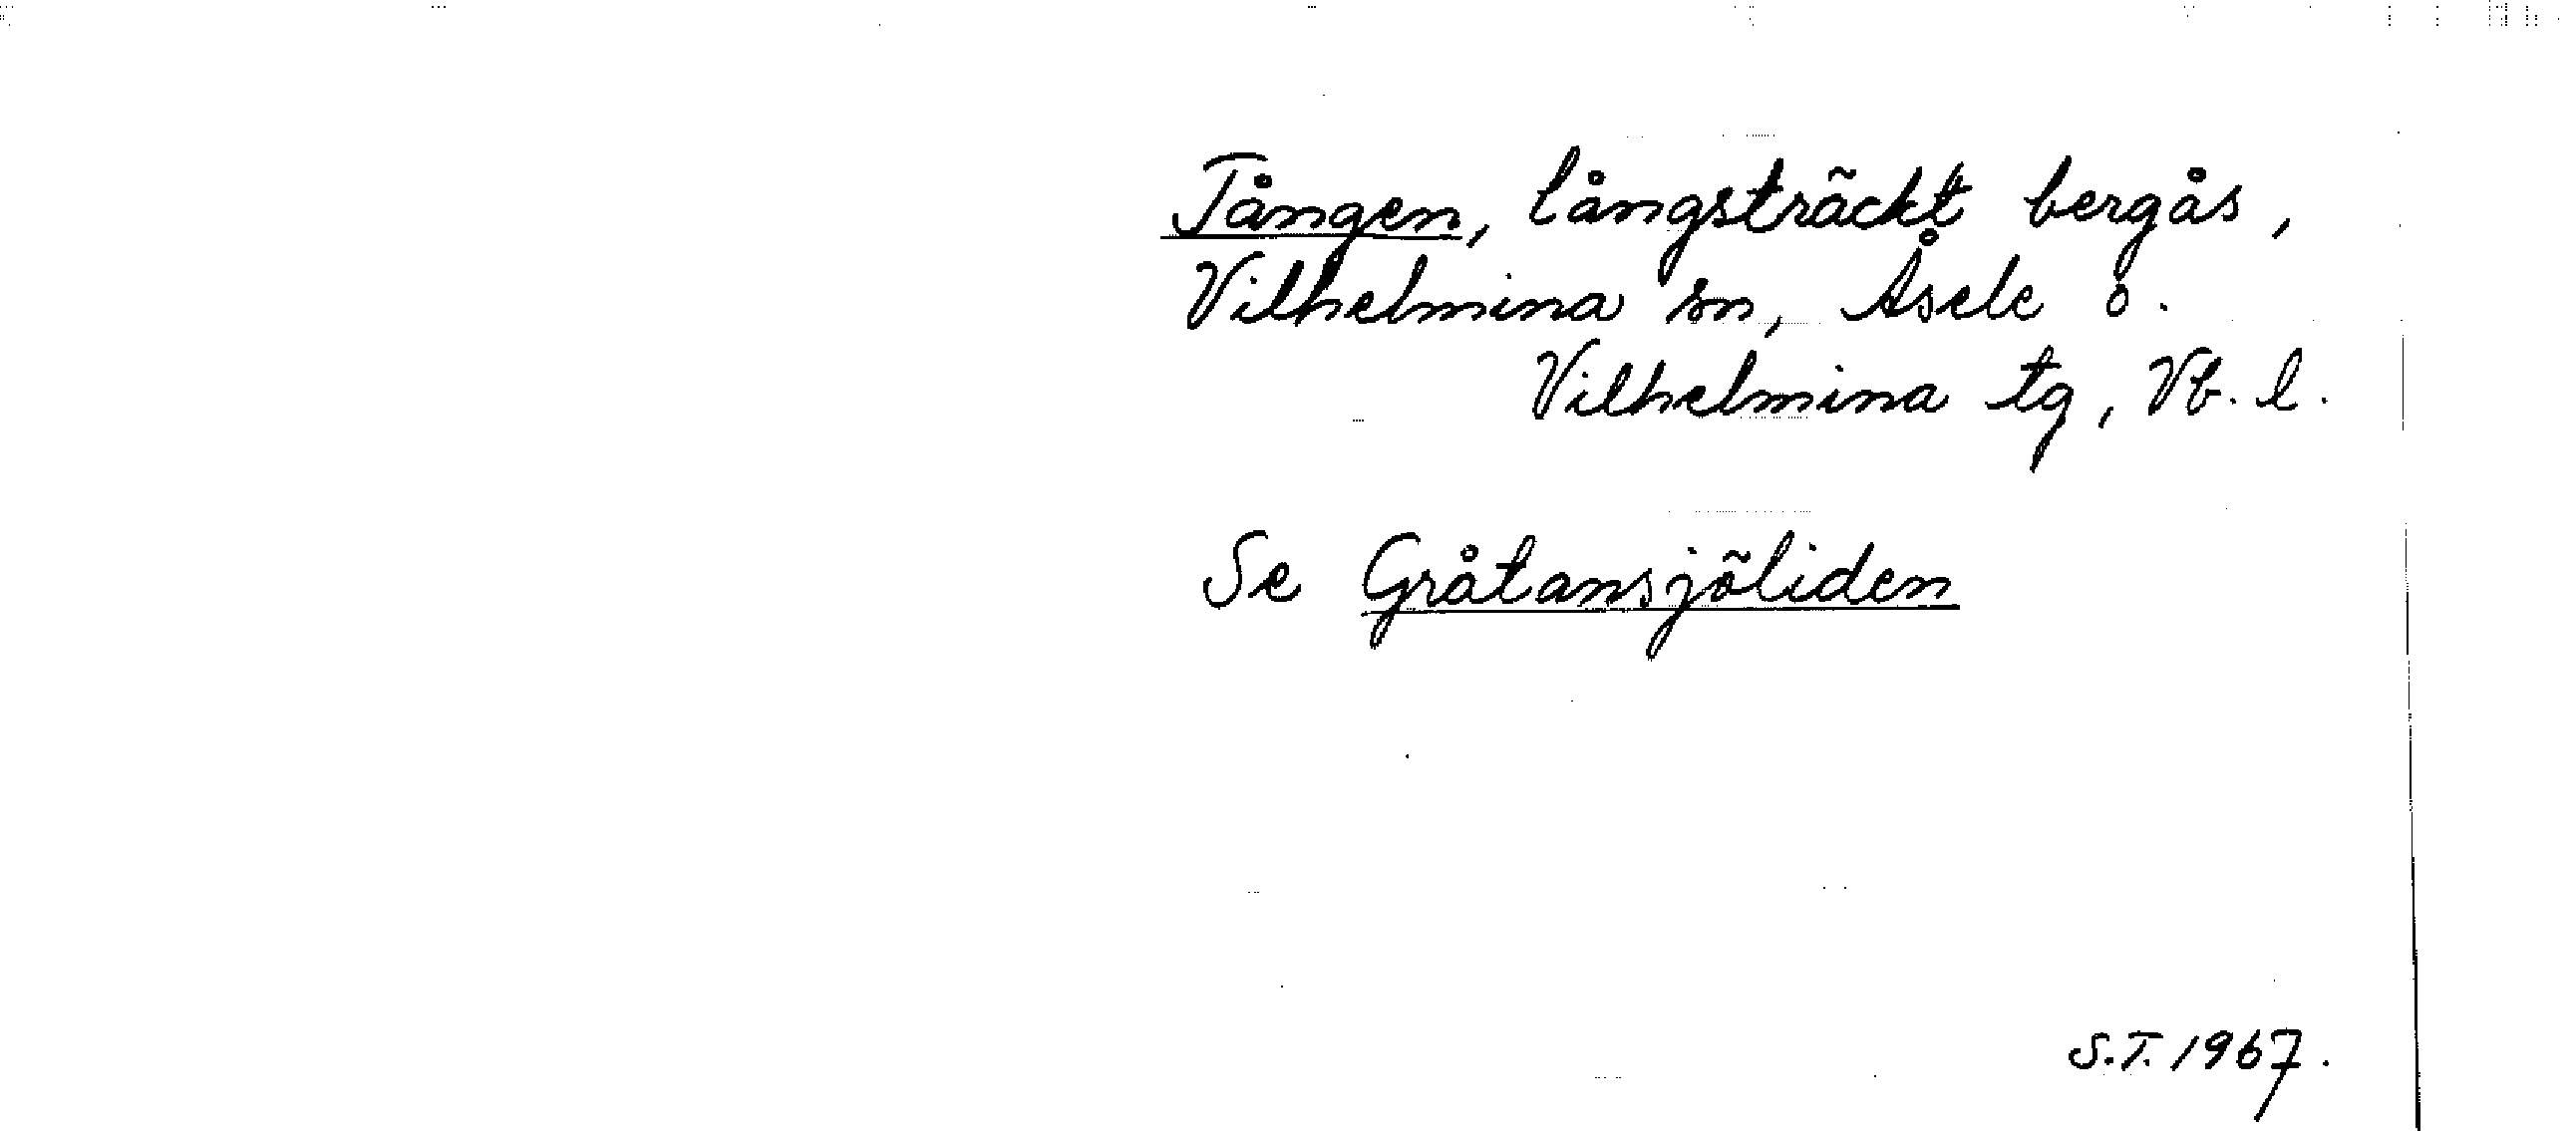 Tången, långsträckt bergås,
Vilhelmina sn, Åsele o.
Vilhelmina tg, Vb. l.
Se Gråtansjöliden
S.T. 1967.